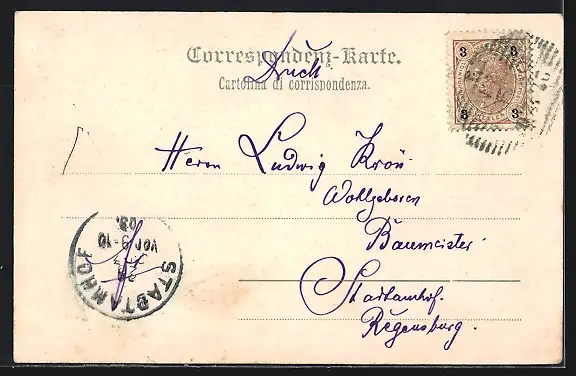 Correspondenz-Karte.
Druck
Cartolina di corrispondenza.
3 3
3 3
Herrn Ludwig Krön
Wohlgeboren
Baumeister
Stadtamhof.
Regensburg.
STADTAMHOF
VOR. 9-10